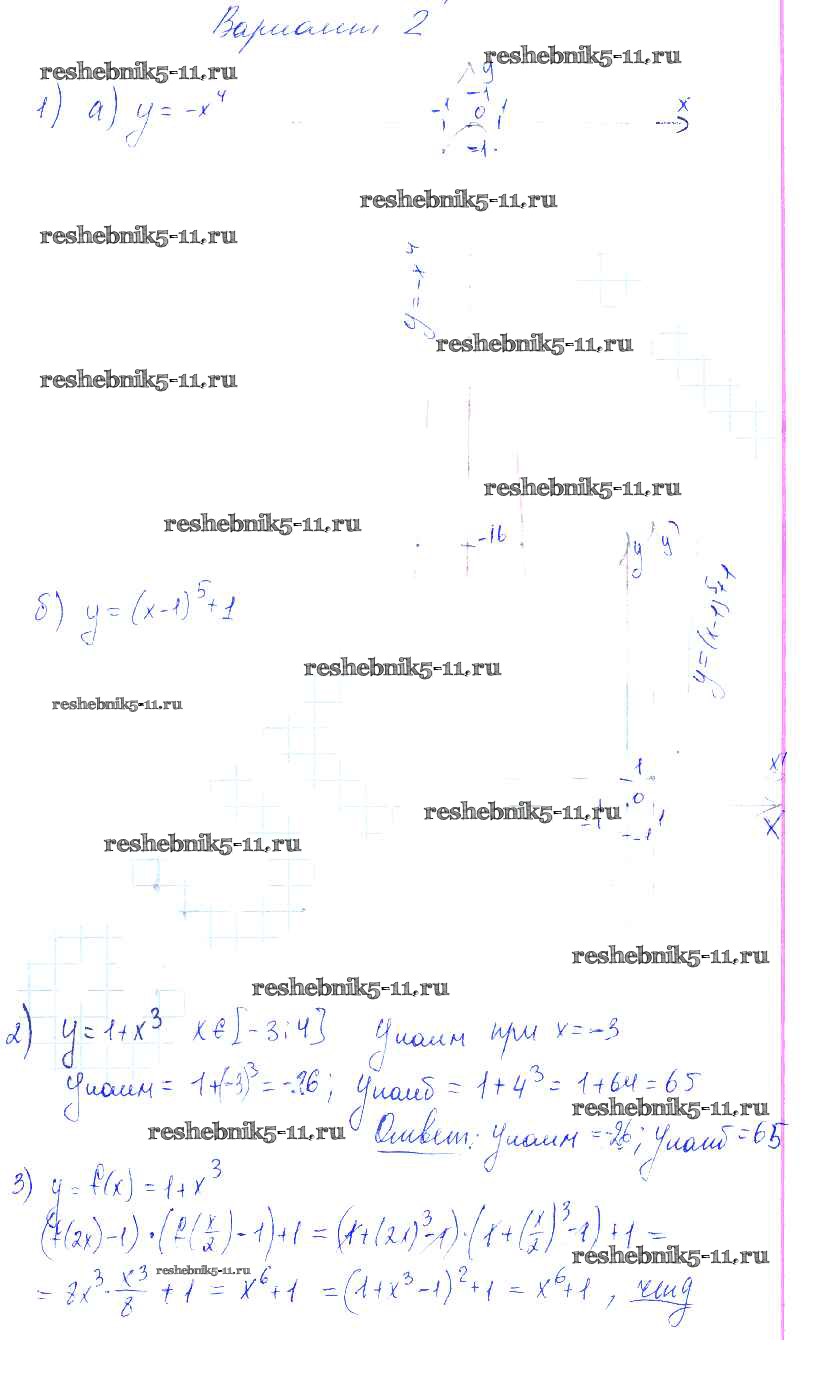 Вариант 2
reshebnik5-11.ru
reshebnik5-11.ru
1) а) y = -x⁴
y
-1
-1 0 1
x
-1
reshebnik5-11.ru
reshebnik5-11.ru
y = -x⁴
reshebnik5-11.ru
reshebnik5-11.ru
reshebnik5-11.ru
reshebnik5-11.ru
-16
y y'
б) y = (x-1)⁵+1
y = (x-1)⁵+1
reshebnik5-11.ru
reshebnik5-11.ru
1
x'
0
reshebnik5-11.ru
-1 1
x
-1
reshebnik5-11.ru
reshebnik5-11.ru
reshebnik5-11.ru
2) y = 1+x³ x∈[-3;4] yнаим при x = -3
yнаим = 1+(-3)³ = -26; yнаиб = 1+4³ = 1+64 = 65
reshebnik5-11.ru
reshebnik5-11.ru
Ответ: yнаим = -26; yнаиб = 65
3) y = f(x) = 1+x³
(f(2x)-1)·(f(x/2)-1)+1 = (1+(2x)³-1)·(1+(x/2)³-1)+1 =
reshebnik5-11.ru
reshebnik5-11.ru
= 8x³·x³/8 + 1 = x⁶+1 = (1+x³-1)²+1 = x⁶+1, чтд